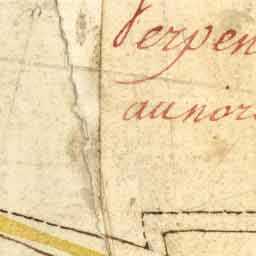 Serpen
au nor